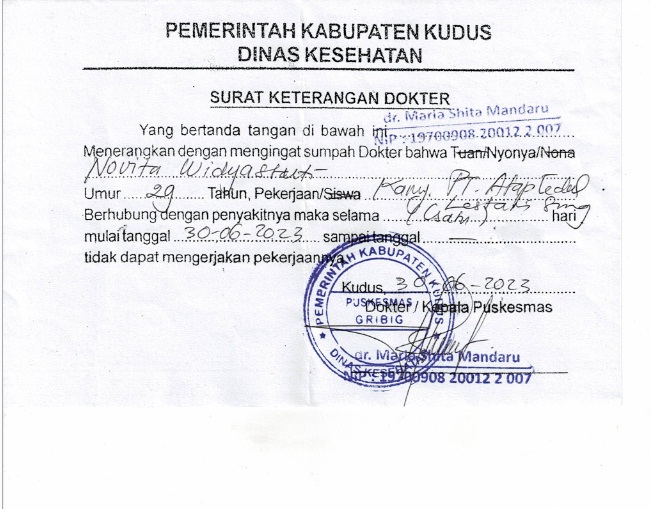 PEMERINTAH KABUPATEN KUDUS
DINAS KESEHATAN
SURAT KETERANGAN DOKTER
dr. Maria Shita Mandaru
Yang bertanda tangan di bawah ini
NIP : 19700908 20012 2 007
Menerangkan dengan mengingat sumpah Dokter bahwa Tuan/Nyonya/Nona
Novita Widyastuti
Umur 29 Tahun, Pekerjaan/Siswa Kary. PT.
Lestari
Berhubung dengan penyakitnya maka selama 1 (satu) hari
mulai tanggal 30-06-2023 sampai tanggal —
tidak dapat mengerjakan pekerjaannya.
Kudus, 30-06-2023
Dokter / Kepala Puskesmas
PEMERINTAH KABUPATEN KUDUS
PUSKESMAS
GRIBIG
DINAS KESEHATAN
dr. Maria Shita Mandaru
NIP : 19700908 20012 2 007